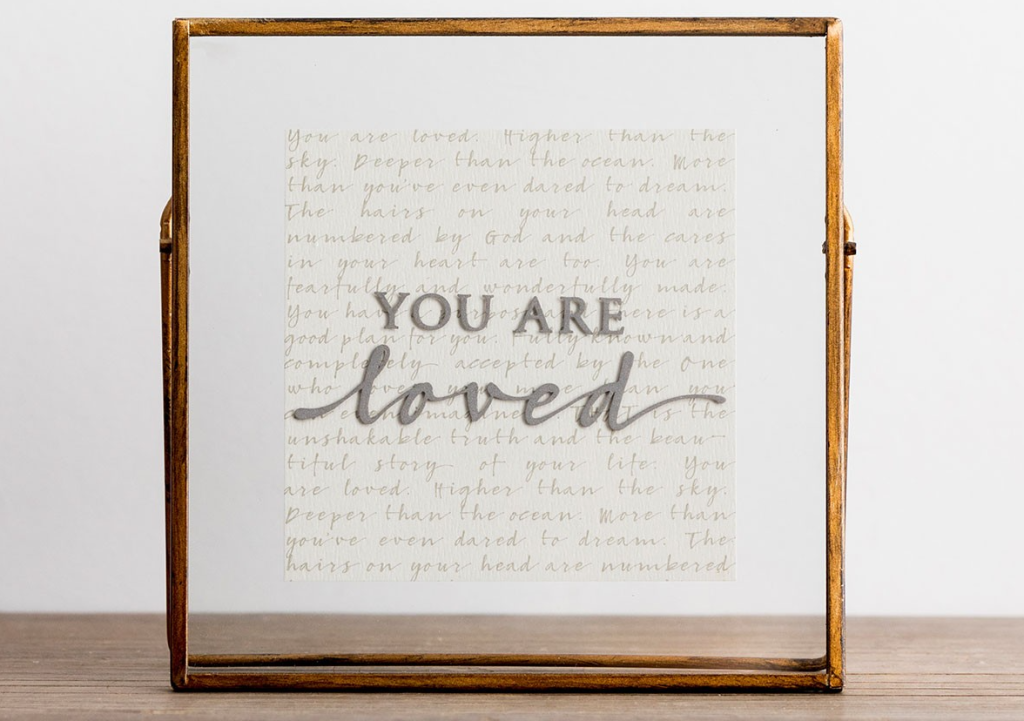 You are loved. Higher than the
sky. Deeper than the ocean. More
than you've even dared to dream.
The hairs on your head are
numbered by God and the cares
in your heart are too. You are
fearfully and wonderfully made.
You have a purpose. There is a
YOU ARE
good plan for you. Fully known and
completely accepted by the One
who loves you more than you
loved
are even imagine. THAT is the
unshakable truth and the beau-
tiful story of your life. You
are loved. Higher than the sky.
Deeper than the ocean. More than
you've even dared to dream. The
hairs on your head are numbered